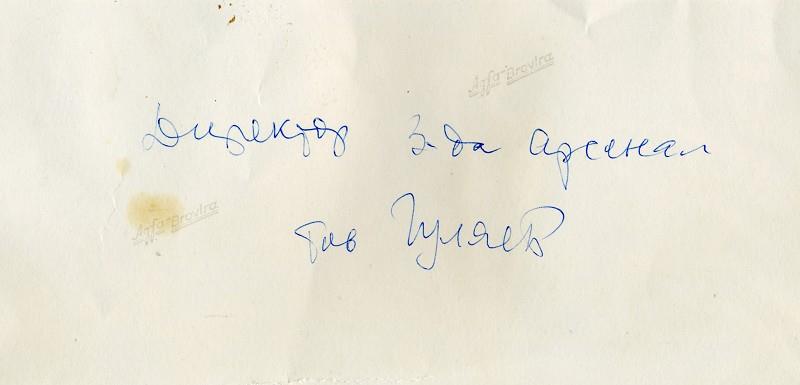 Agfa-Brovira
Директор З-да Арсенал
тов Гуляев
Agfa-Brovira